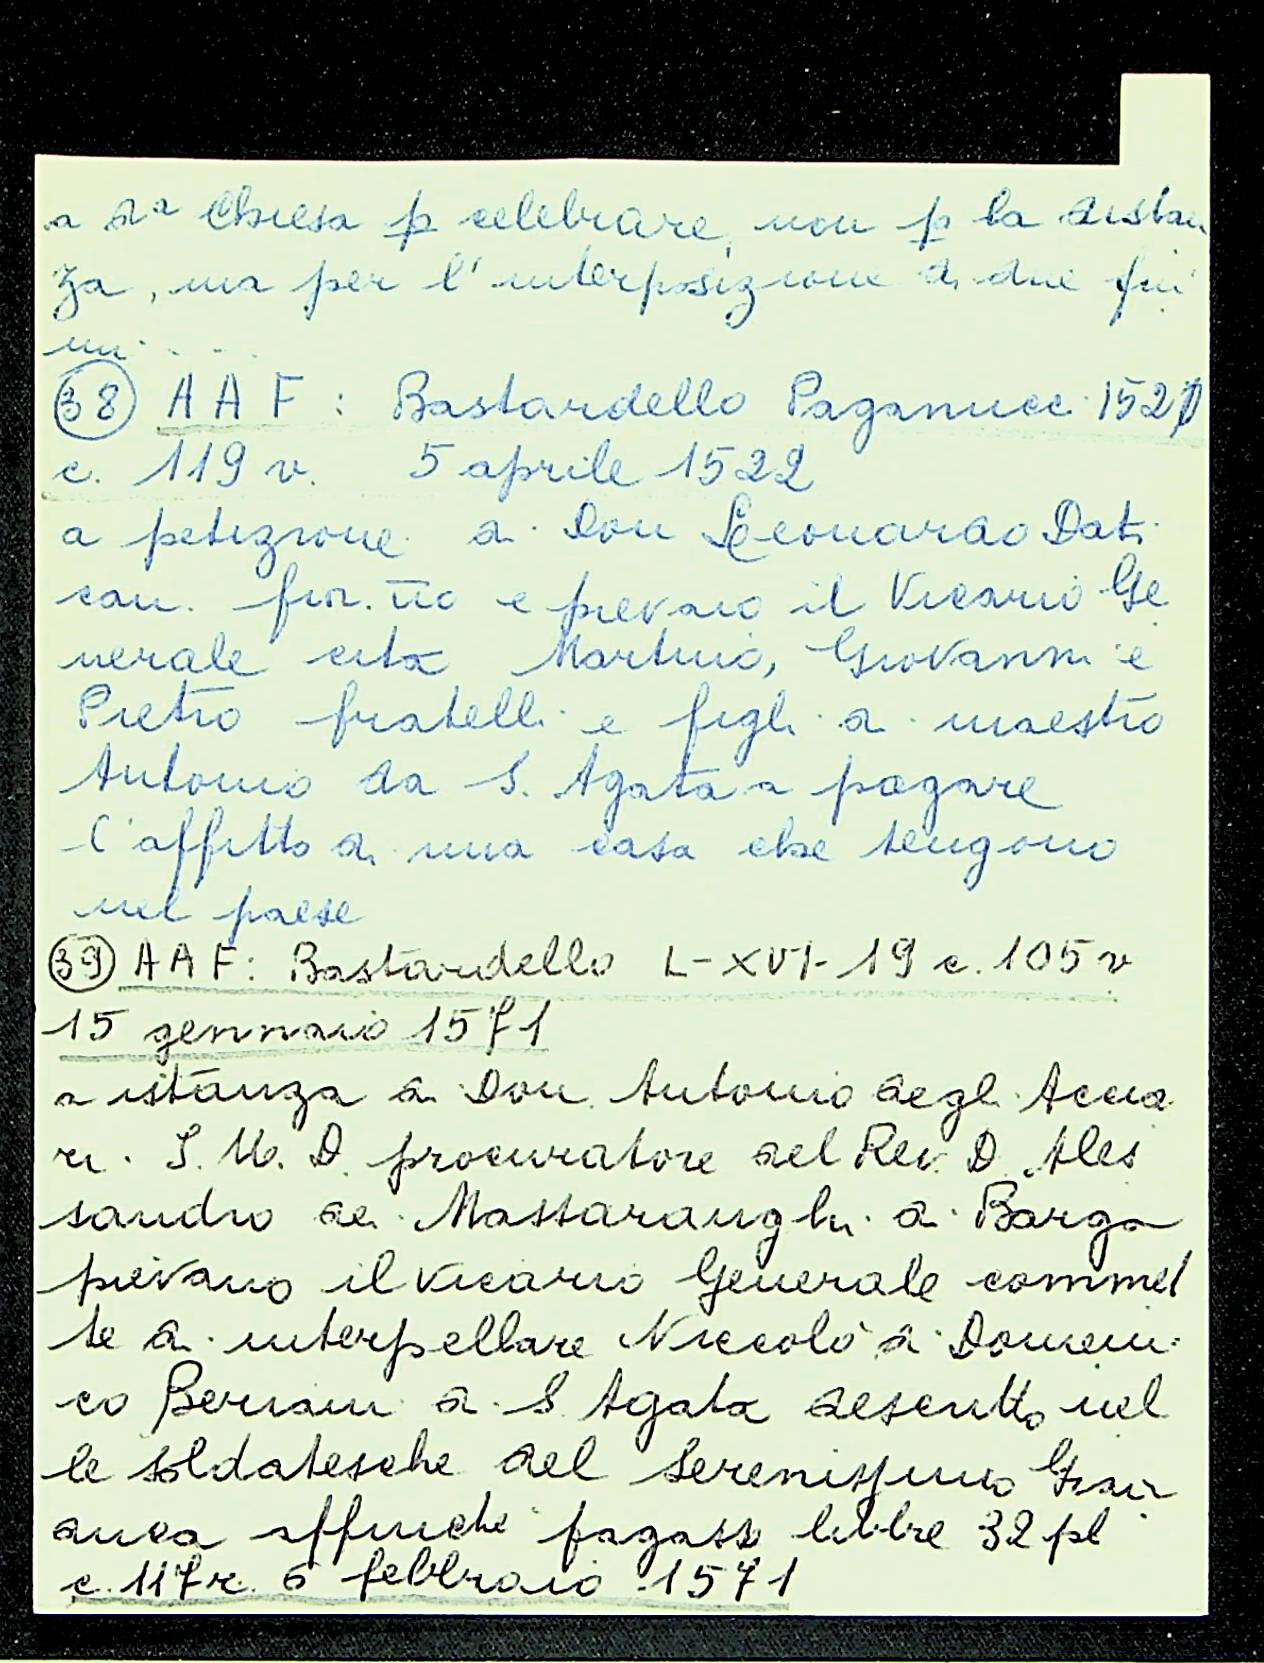 a da Chiesa p celebrare, non p la distan
za, ma per l'interposizione di due fiu
mi....
38 AAF: Bastardello Paganucci 1521
c. 119 v. 5 aprile 1522
a petizione di Don Leonardo Dati
can. fior.no e pievano il Vicario Ge
nerale cita Martino, Giovanni e
Pietro fratelli e figli di maestro
Antonio da S. Agata a pagare
l'affitto di una casa che tengono
nel paese
39 AAF: Bastardello L-XVI-19 c. 105 v
15 gennaio 1571
a istanza di Don Antonio degli Accia
ri. S. M. D. procuratore del Rev. D. Ales
sandro dei Massaranghi di Barga
pievano il Vicario Generale commet
te di interpellare Niccolò di Domeni
co di S. Agata descritto nel
le soldatesche del Serenissimo Gran
duca affinché pagasse libbre 32 pl
c. 117 r. 6 febbraio 1571